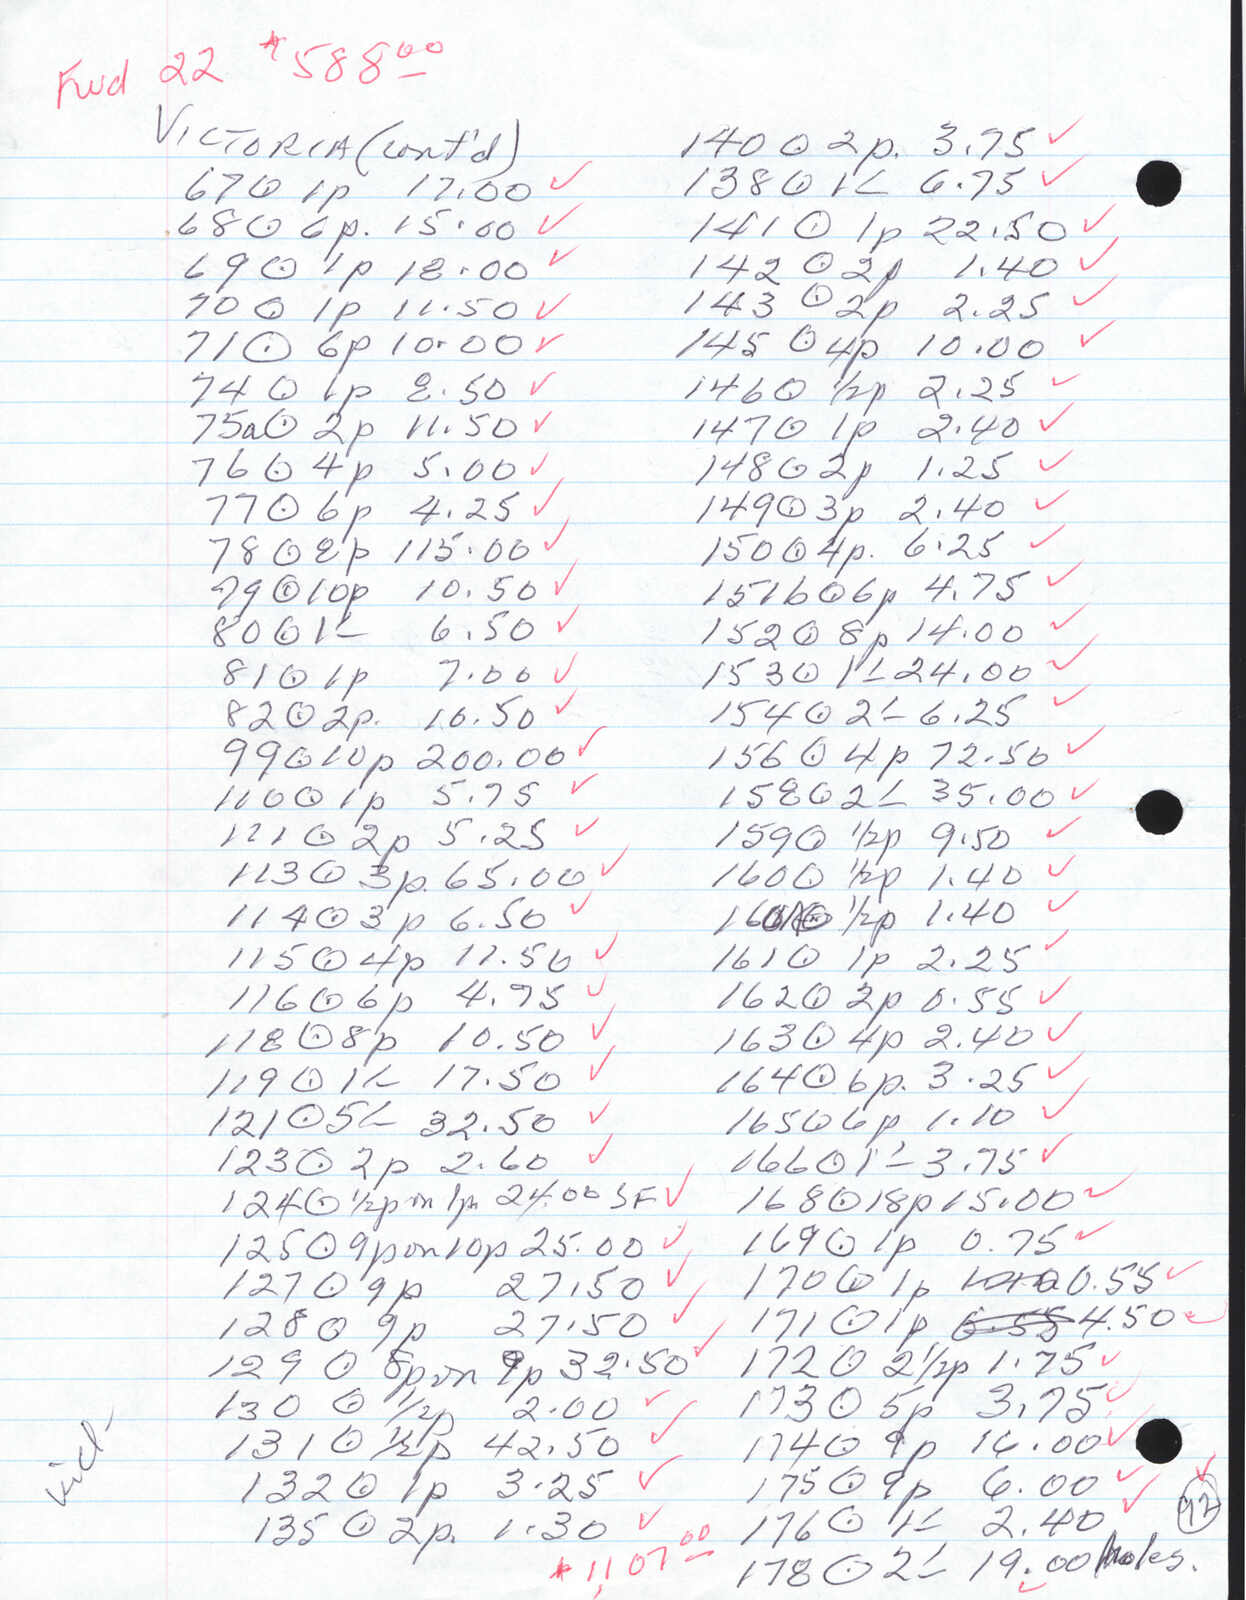 Fwd 22 $588.00
VICTORIA (cont'd)
67 ⊙ 1p 17.00 ✓
68 ⊙ 6p. 15.00 ✓
69 ⊙ 1p 18.00 ✓
70 ⊙ 1p 11.50 ✓
71 ⊙ 6p 10.00 ✓
74 ⊙ 1p 8.50 ✓
75a ⊙ 2p 11.50 ✓
76 ⊙ 4p 5.00 ✓
77 ⊙ 6p 4.25 ✓
78 ⊙ 8p 115.00 ✓
79 ⊙ 10p 10.50 ✓
80 ⊙ 1/- 6.50 ✓
81 ⊙ 1p 7.00 ✓
82 ⊙ 2p. 16.50 ✓
99 ⊙ 10p 200.00 ✓
110 ⊙ 1p 5.75 ✓
111 ⊙ 2p 5.25 ✓
113 ⊙ 3p. 65.00 ✓
114 ⊙ 3p 6.50 ✓
115 ⊙ 4p 11.50 ✓
116 ⊙ 6p 4.75 ✓
118 ⊙ 8p 10.50 ✓
119 ⊙ 1/- 17.50 ✓
121 ⊙ 5/- 32.50 ✓
123 ⊙ 2p 2.60 ✓
124 ⊙ 1/2p on 1p 24.00 SF ✓
125 ⊙ 9p on 10p 25.00 ✓
127 ⊙ 9p 27.50 ✓
128 ⊙ 9p 27.50 ✓
129 ⊙ 8p on 9p 32.50 ✓
130 ⊙ 1/2p 2.00 ✓
131 ⊙ 1/2p 42.50 ✓
132 ⊙ 1p 3.25 ✓
135 ⊙ 2p. 1.30 ✓
$1,107.00
Vict-
140 ⊙ 2p. 3.75 ✓
138 ⊙ 1/- 6.75 ✓
141 ⊙ 1p 22.50 ✓
142 ⊙ 2p 1.40 ✓
143 ⊙ 2p 2.25 ✓
145 ⊙ 4p 10.00 ✓
146 ⊙ 1/2p 2.25 ✓
147 ⊙ 1p 2.40 ✓
148 ⊙ 2p 1.25 ✓
149 ⊙ 3p 2.40 ✓
150 ⊙ 4p. 6.25 ✓
151b ⊙ 6p 4.75 ✓
152 ⊙ 8p 14.00 ✓
153 ⊙ 1/- 24.00 ✓
154 ⊙ 2/- 6.25 ✓
156 ⊙ 4p 72.50 ✓
158 ⊙ 2/- 35.00 ✓
159 ⊙ 1/2p 9.50 ✓
160 ⊙ 1/2p 1.40 ✓
160 ⊙ 1/2p 1.40 ✓
161 ⊙ 1p 2.25 ✓
162 ⊙ 2p 0.55 ✓
163 ⊙ 4p 2.40 ✓
164 ⊙ 6p. 3.25 ✓
165 ⊙ 6p 1.10 ✓
166 ⊙ 1/- 3.75 ✓
168 ⊙ 18p 15.00 ✓
169 ⊙ 1p 0.75 ✓
170 ⊙ 1p 0.55 ✓
171 ⊙ 1p 0.55 4.50 ✓
172 ⊙ 2 1/2p 1.75 ✓
173 ⊙ 5p 3.75 ✓
174 ⊙ 9p 16.00 ✓
175 ⊙ 9p 6.00 ✓
176 ⊙ 1/- 2.40 ✓
92 ✓
178 ⊙ 2/- 19.00 holes. ✓